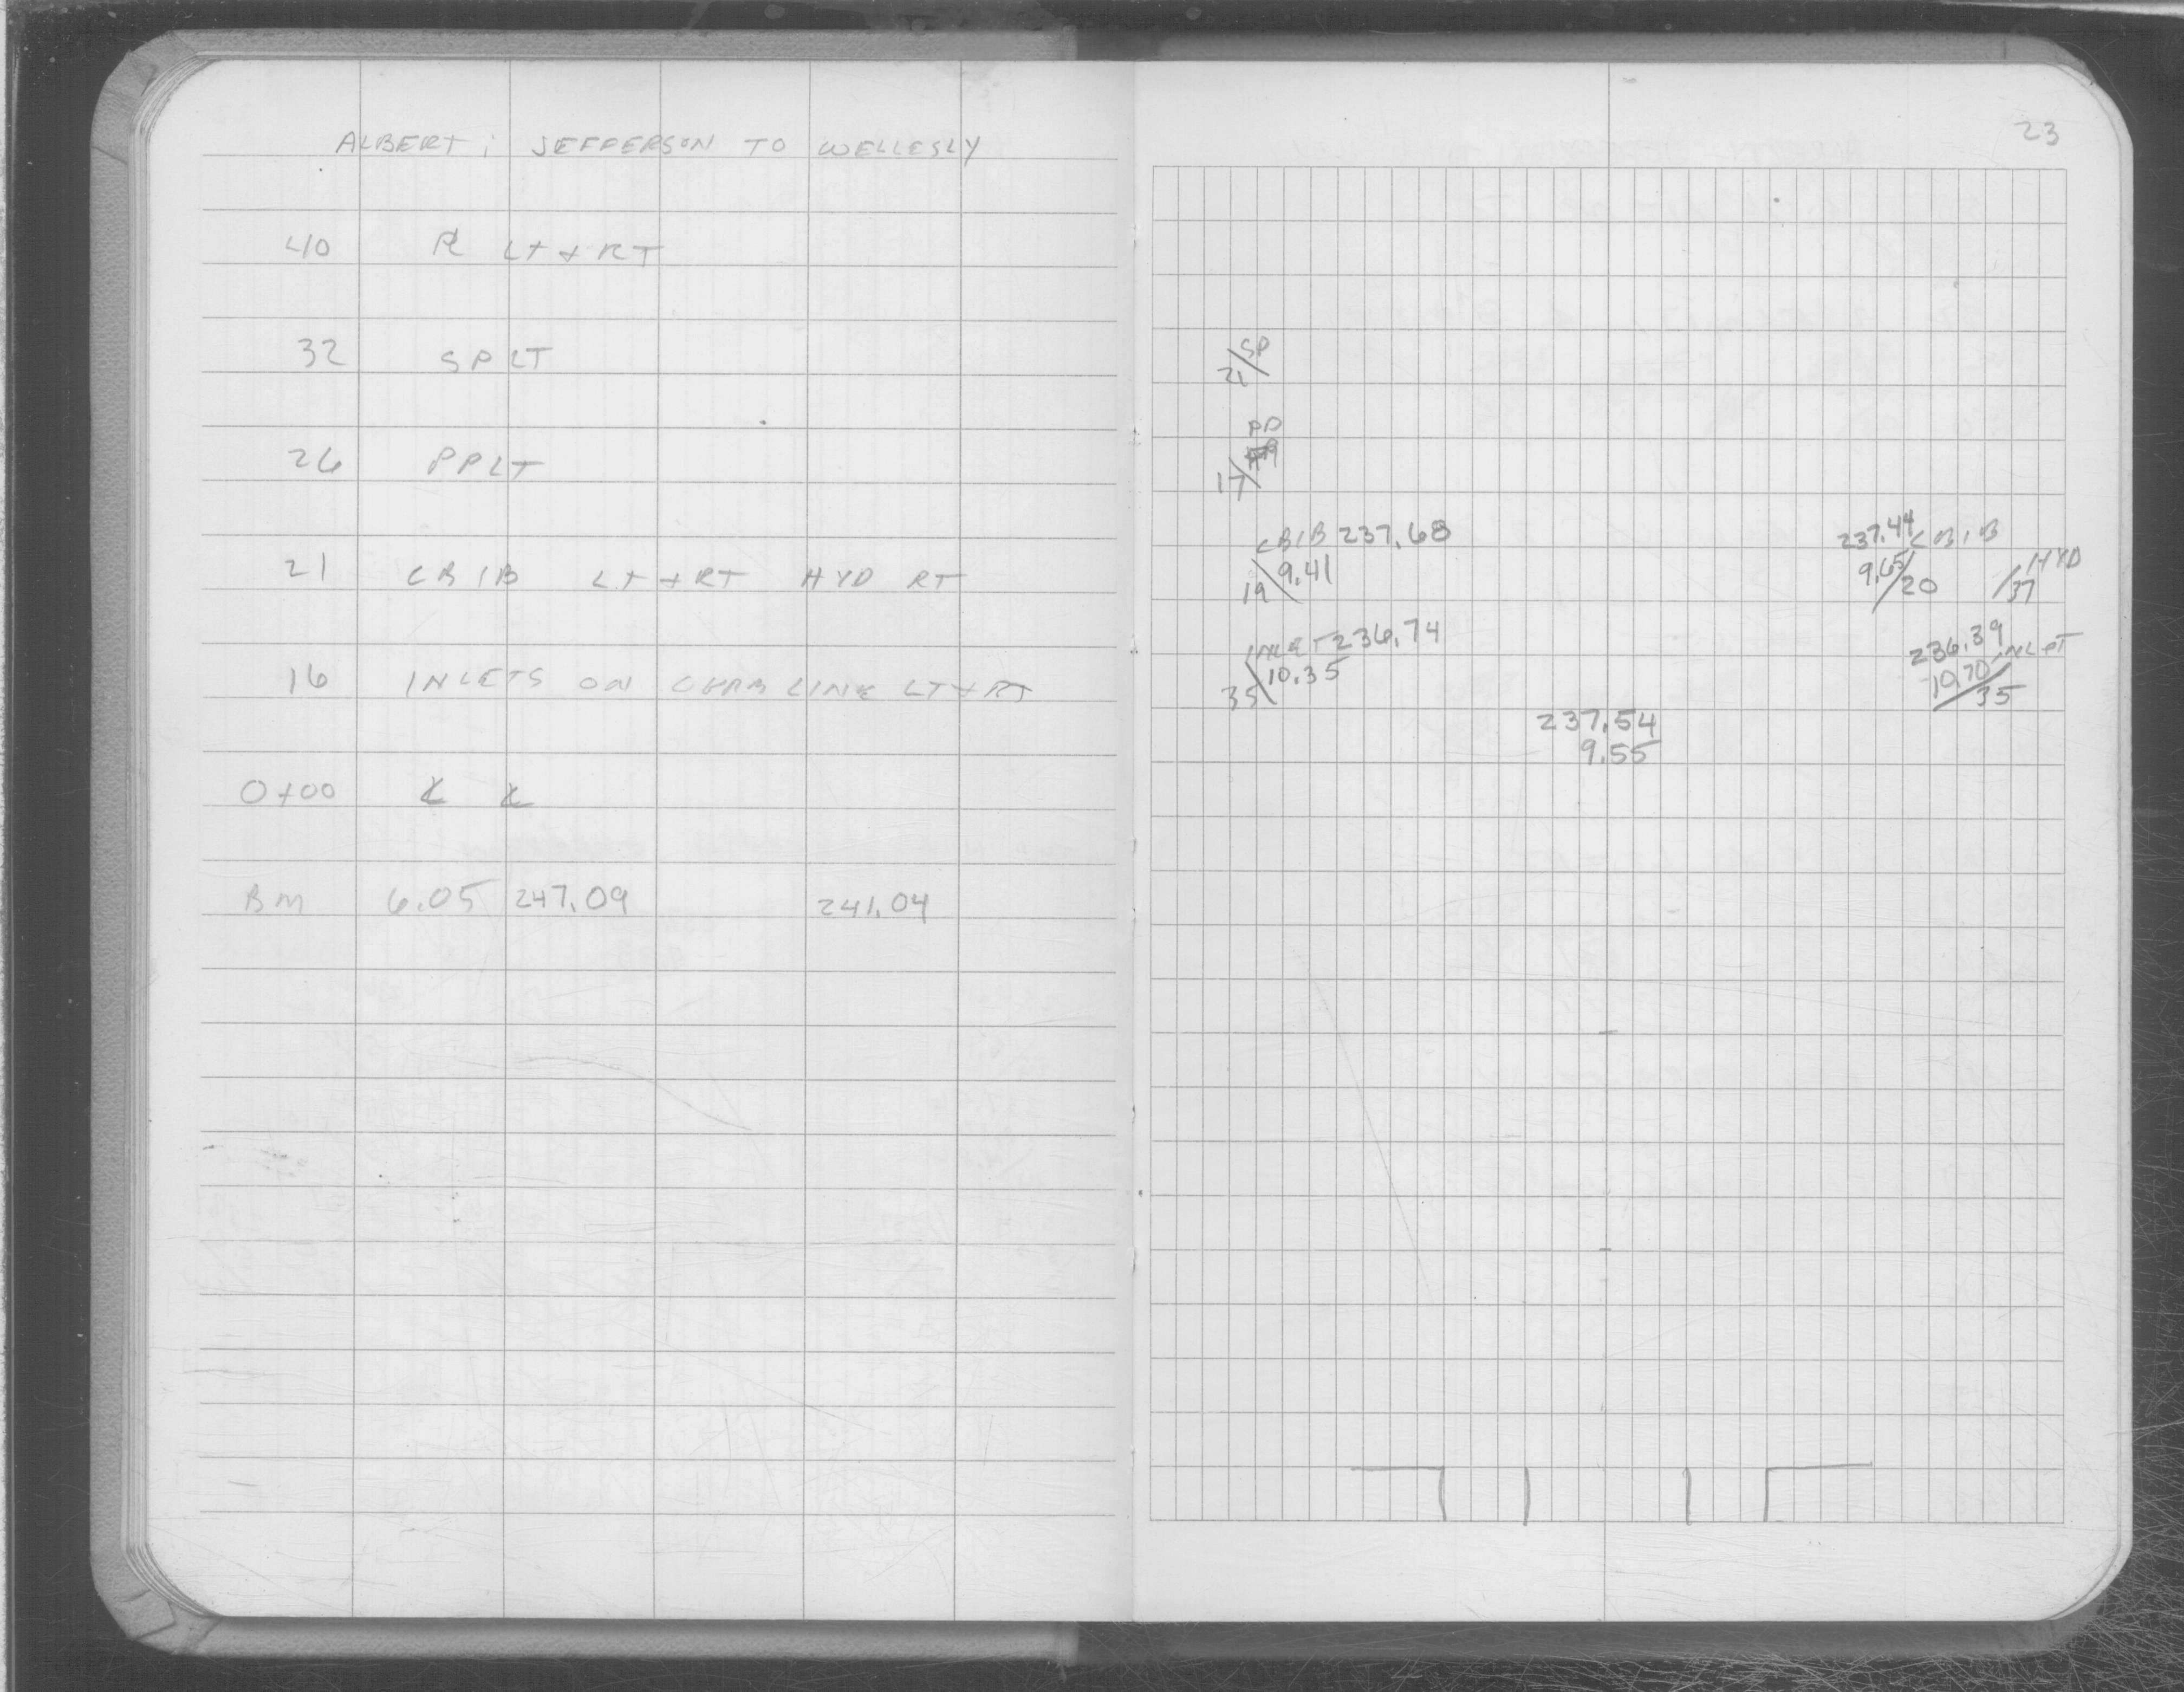 ALBERT; JEFFERSON TO WELLESLY
40 PL LT + RT
32 SP LT
26 PP LT
21 CB1B LT + RT HYD RT
16 INLETS ON CURB LINE LT + RT
0+00 CL CL
BM 6.05 247.09 241.04
23
SP
21
PP
17
CB1B 237.68
19 9.41
237.44 CB1B
9.65 20
HYD
37
INLET 236.74
35 10.35
236.39 INLET
10.70 35
237.54
9.55